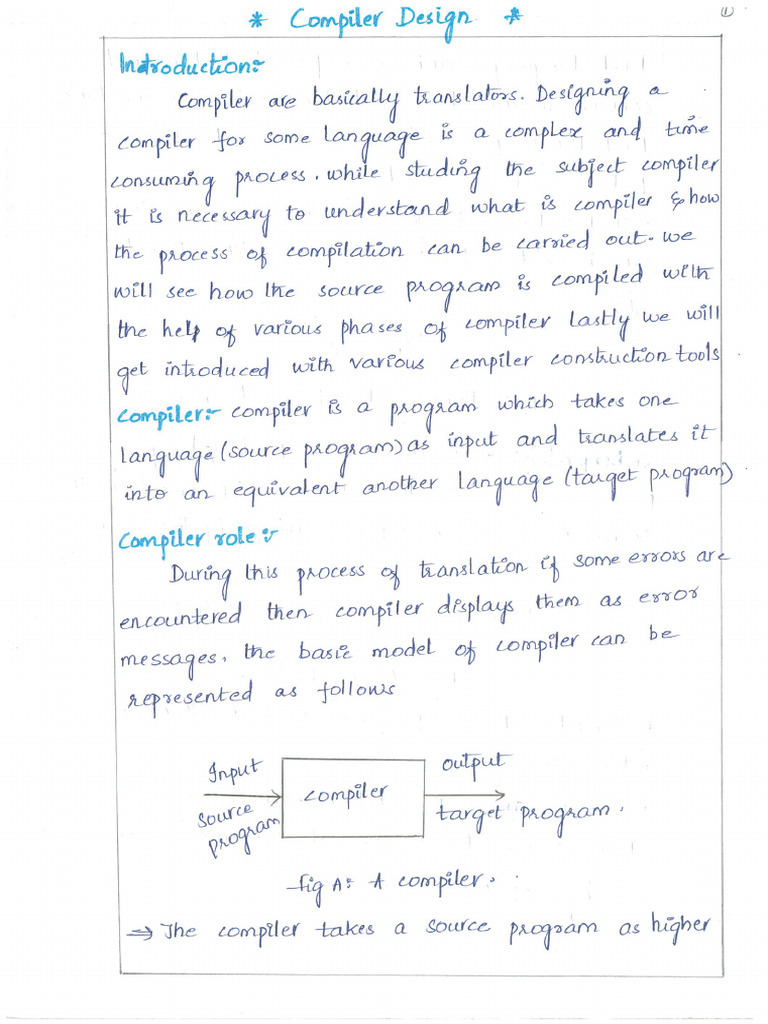 * Compiler Design *
1
Introduction:-
Compiler are basically translators. Designing a
compiler for some language is a complex and time
consuming process. while studing the subject compiler
it is necessary to understand what is compiler & how
the process of compilation can be carried out. we
will see how the source program is compiled with
the help of various phases of compiler lastly we will
get introduced with various compiler construction tools
Compiler:- compiler is a program which takes one
language (source program) as input and translates it
into an equivalent another language (target program).
Compiler role:-
During this process of translation if some errors are
encountered then compiler displays them as error
messages. the basic model of compiler can be
represented as follows
Input
source
program
compiler
output
target program.
fig A: A compiler.
⇒ The compiler takes a source program as higher